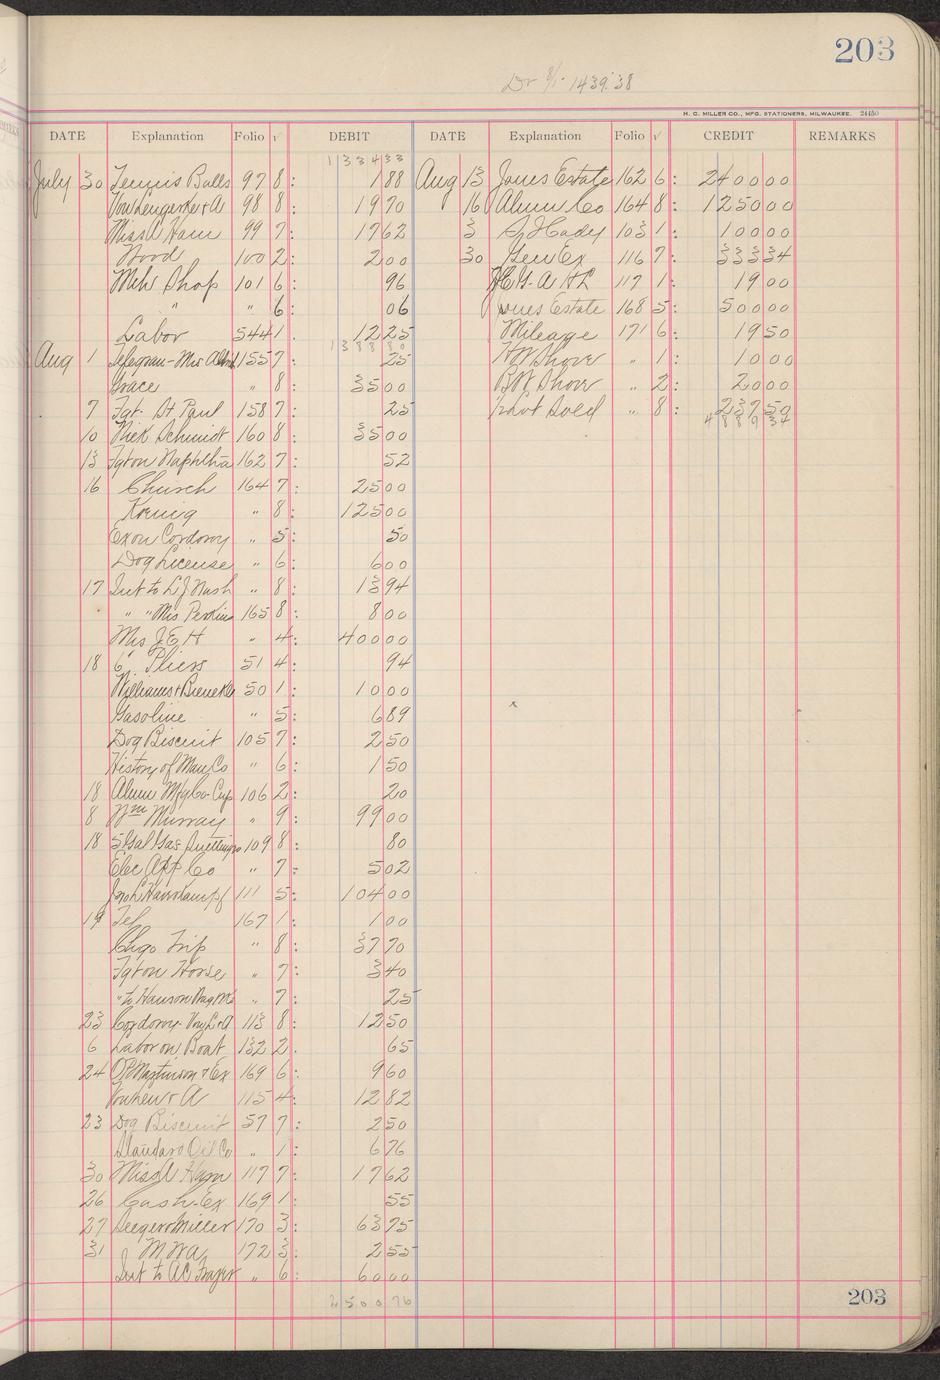 203
Dr 8/1 - 1439.38
H. C. MILLER CO., MFG. STATIONERS, MILWAUKEE. 24450
DATE Explanation Folio √ DEBIT DATE Explanation Folio √ CREDIT REMARKS
113433
July 30 Tennis Balls 97 8: 188 Aug 13 Jones Estate 162 6: 240000
VonLengerke & A 98 8 1970 16 Alum Co 164 8: 125000
Miss A Ham 99 7: 1762 3 103 1: 10000
Wood 100 2: 200 30 Gen Ex 116 7: 33334
Meh Shop 101 6 96 G. A H L 117 1: 1900
" " 6: 06 Jones Estate 168 5: 50000
Labor 544 1. 1225 Mileage 171 6: 1950
13880
Aug 1 Telegram - Mrs 155 7: 25 HW Shove " 1: 1000
Grace " 8: 3500 BW Shove " 2: 2000
7 Fgt. St Paul 158 7: 25 " 8: 23759
10 Nick Schmidt 160 8: 3500 488934
13 Fgt on Naphtha 162 7: 52
16 Church 164 7: 2500
Koenig " 8: 12500
Ex on Cordovoy " 5: 50
Dog License " 6: 600
17 Int to L J Nash " 8: 1394
" " Mis Perkins 165 8: 800
Mrs J E H " 4: 40000
18 6" Pliers 51 4: 94
Williams & 50 1: 1000
Gasoline " 5: 689
Dog Biscuit 105 7: 250
History of Man Co " 6: 150
18 Alum Mfg Co - Cup 106 2: 20
8 Wm Murray " 9: 9900
18 5 Gal Gas 109 8: 80
Elec App Co " 7: 502
111 5: 10400
19 Tel 167 1: 100
Chgo Trip " 8: 3770
Fgt on Horse " 7: 340
" to Hanson " 7: 25
23 Cordovoy - Von L & A 113 8: 1250
6 Labor on Boat 132 2. 65
24 & Ex 169 6: 960
& A 115 4: 1282
23 Dog Biscuit 57 7: 250
Standard Oil Co " 1: 676
30 Miss A Ham 117 7: 1762
26 Cash-Ex 169 1: 55
27 Seeger & Miller 170 3: 6375
31 M W A 172 3: 255
Int to AC Frazer " 6: 6000
250076
203